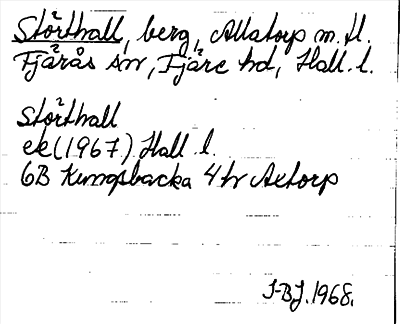 Störthall, berg, Allatorp m. fl.
Fjärås sn, Fjäre hd, Hall. l.
Störthall
ek (1967) Hall l.
6B Kungsbacka 4h Axtorp
J-BJ. 1968.